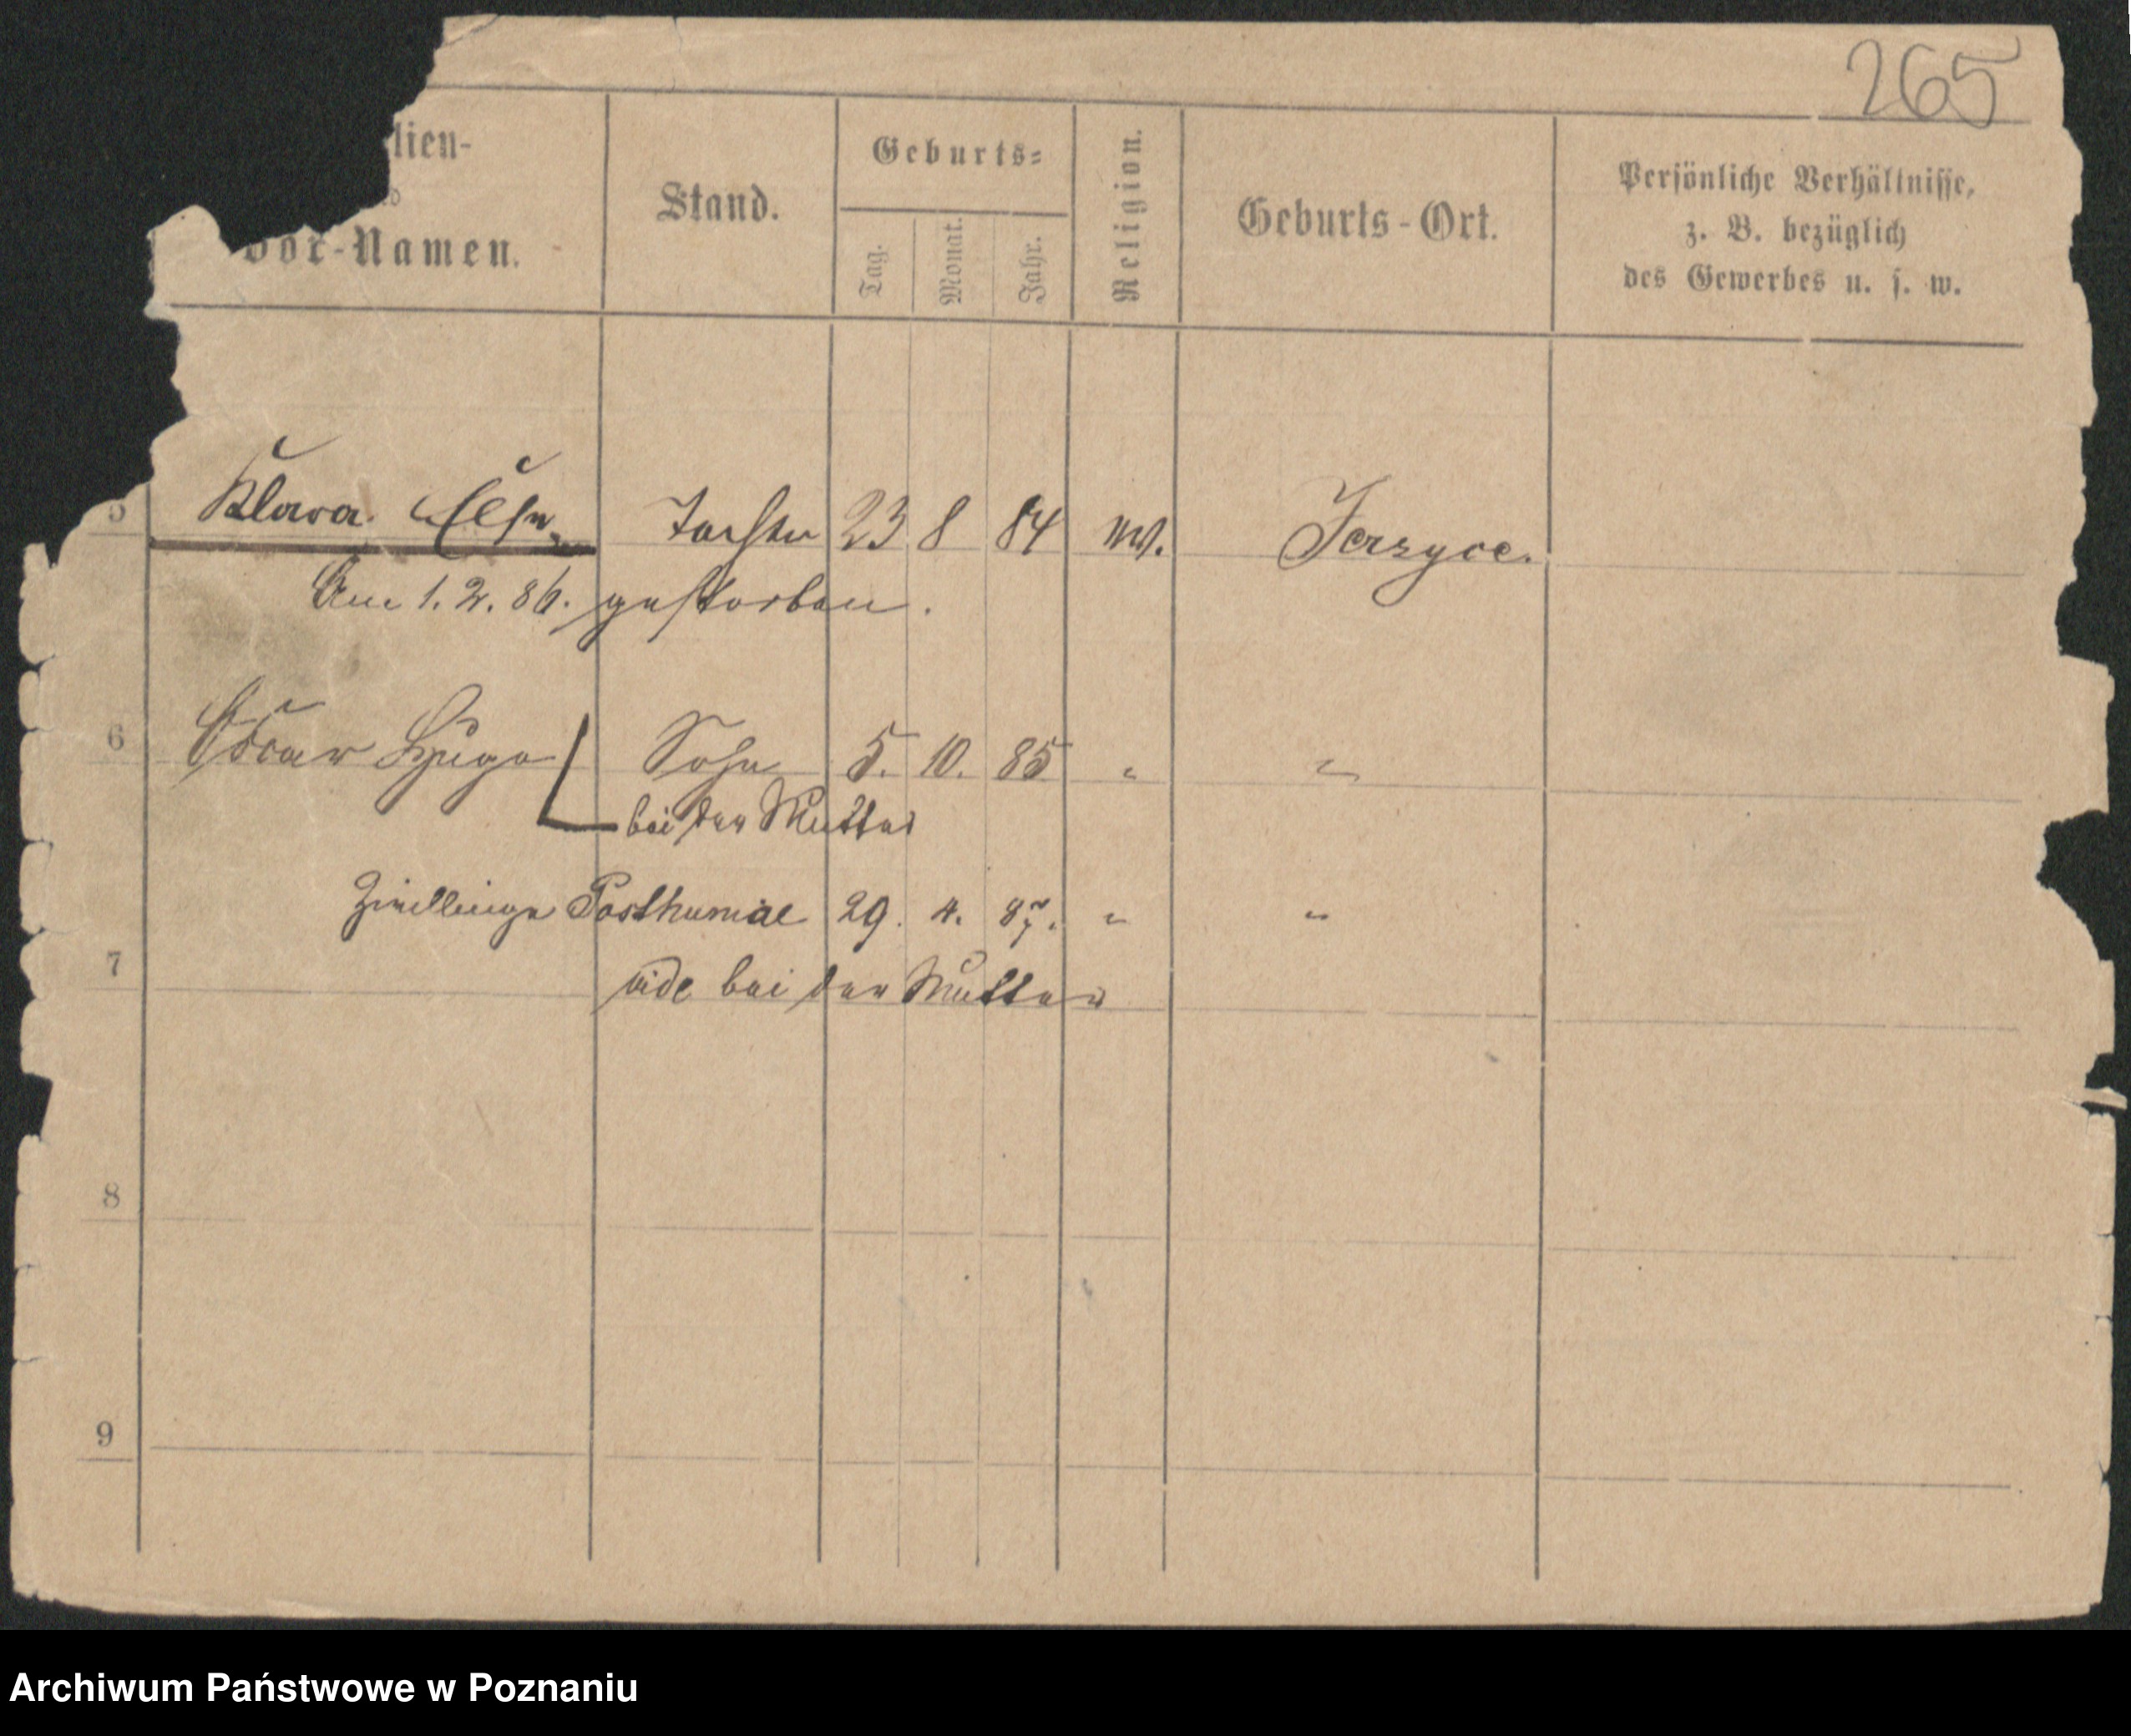 265
lien-
Vor-Namen.
Stand.
Geburts-
Tag.
Monat.
Jahr.
Religion.
Geburts-Ort.
Persönliche Verhältnisse,
z. B. bezüglich
des Gewerbes u. s. w.
5 Klara Else Tochter 23 8 84 Jerzyce.
Am 1. 2. 86. gestorben.
6 Oscar Hugo Sohn 5. 10. 85 " "
bei der Mutter
Zwillinge Posthumae 29. 4. 87. " "
7 vide bei der Mutter
8
9
Archiwum Państwowe w Poznaniu